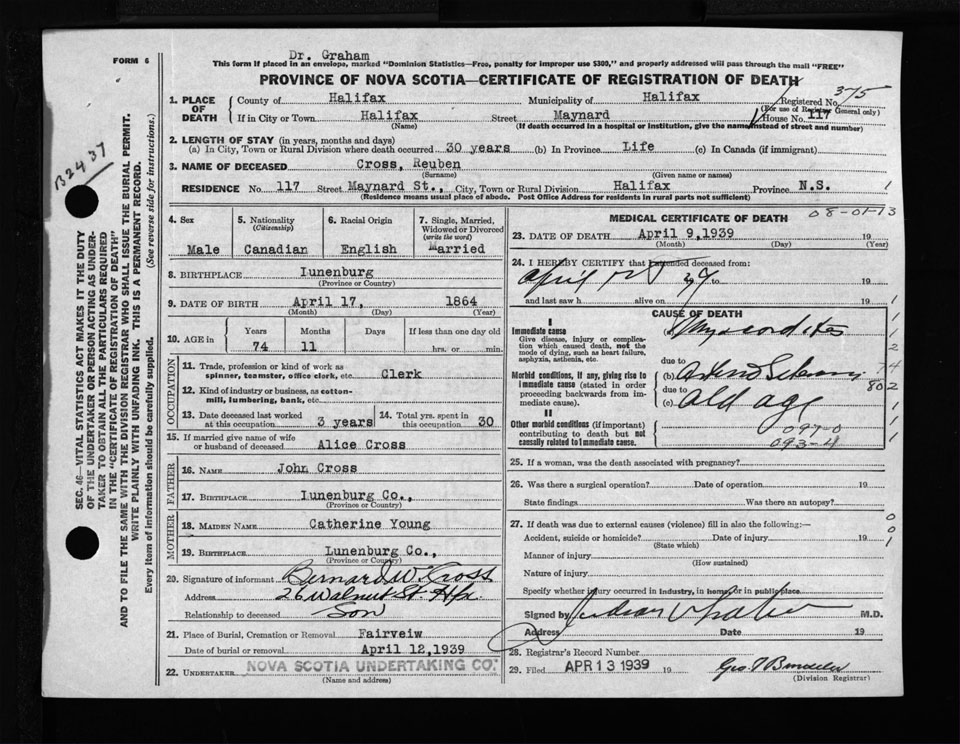 Dr. Graham
FORM 6
This form if placed in an envelope, marked "Dominion Statistics—Free, penalty for improper use $300," and properly addressed will pass through the mail "FREE"
PROVINCE OF NOVA SCOTIA—CERTIFICATE OF REGISTRATION OF DEATH
375
1. PLACE OF DEATH County of Halifax Municipality of Halifax Registered No.
(For use of Registrar General only)
If in City or Town Halifax Street Maynard House No. 117
(Name) (If death occurred in a hospital or institution, give the name instead of street and number)
2. LENGTH OF STAY (in years, months and days)
(a) In City, Town or Rural Division where death occurred 30 years (b) In Province Life (c) In Canada (if immigrant)
3. NAME OF DECEASED Cross, Reuben
(Surname) (Given name or names)
RESIDENCE No. 117 Street Maynard St., City, Town or Rural Division Halifax Province N.S. 1
(Residence means usual place of abode. Post Office Address for residents in rural parts not sufficient)
4. Sex 5. Nationality (Citizenship) 6. Racial Origin 7. Single, Married, Widowed or Divorced (write the word)
Male Canadian English Married
8. BIRTHPLACE Lunenburg
(Province or Country)
9. DATE OF BIRTH April 17, 1864
(Month) (Day) (Year)
10. AGE in Years Months Days If less than one day old
74 11 hrs. or min.
OCCUPATION
11. Trade, profession or kind of work as spinner, teamster, office clerk, etc. Clerk
12. Kind of industry or business, as cotton-mill, lumbering, bank, etc.
13. Date deceased last worked at this occupation 3 years 14. Total yrs. spent in this occupation 30
15. If married give name of wife or husband of deceased Alice Cross
FATHER
16. NAME John Cross
17. BIRTHPLACE Lunenburg Co.,
(Province or Country)
MOTHER
18. MAIDEN NAME Catherine Young
19. BIRTHPLACE Lunenburg Co.,
(Province or Country)
20. Signature of informant Bernard W. Cross
Address 26 Walnut St. Hfx.
Relationship to deceased Son
21. Place of Burial, Cremation or Removal Fairveiw
Date of burial or removal April 12, 1939
22. UNDERTAKER NOVA SCOTIA UNDERTAKING CO.
(Name and address)
MEDICAL CERTIFICATE OF DEATH
08-01-13
23. DATE OF DEATH April 9, 1939 19
(Month) (Day) (Year)
24. I HEREBY CERTIFY that I attended deceased from:
April 19 to 19
and last saw h alive on 19
CAUSE OF DEATH
I
Immediate cause
Give disease, injury or complication which caused death, not the mode of dying, such as heart failure, asphyxia, asthenia, etc.
Myocarditis
due to
Morbid conditions, if any, giving rise to immediate cause (stated in order proceeding backwards from immediate cause).
(b)
due to
(c) Old age
74
802
II
Other morbid conditions (if important) contributing to death but not causally related to immediate cause.
097-0
093-4
25. If a woman, was the death associated with pregnancy?
26. Was there a surgical operation? Date of operation 19
State findings Was there an autopsy?
27. If death was due to external causes (violence) fill in also the following:—
Accident, suicide or homicide? Date of injury 19
(State which)
Manner of injury
(How sustained)
Nature of injury
Specify whether injury occurred in industry, in home, or in public place.
Signed by M.D.
Address Date 19
28. Registrar's Record Number
29. Filed APR 13 1939 19
(Division Registrar)
B2437
SEC. 46—VITAL STATISTICS ACT MAKES IT THE DUTY
OF THE UNDERTAKER OR PERSON ACTING AS UNDER-
TAKER TO OBTAIN ALL THE PARTICULARS REQUIRED
IN THE "CERTIFICATE OF REGISTRATION OF DEATH"
AND TO FILE THE SAME WITH THE DIVISION REGISTRAR WHO SHALL ISSUE THE BURIAL PERMIT.
WRITE PLAINLY WITH UNFADING INK. THIS IS A PERMANENT RECORD.
Every item of information should be carefully supplied. (See reverse side for instructions.)